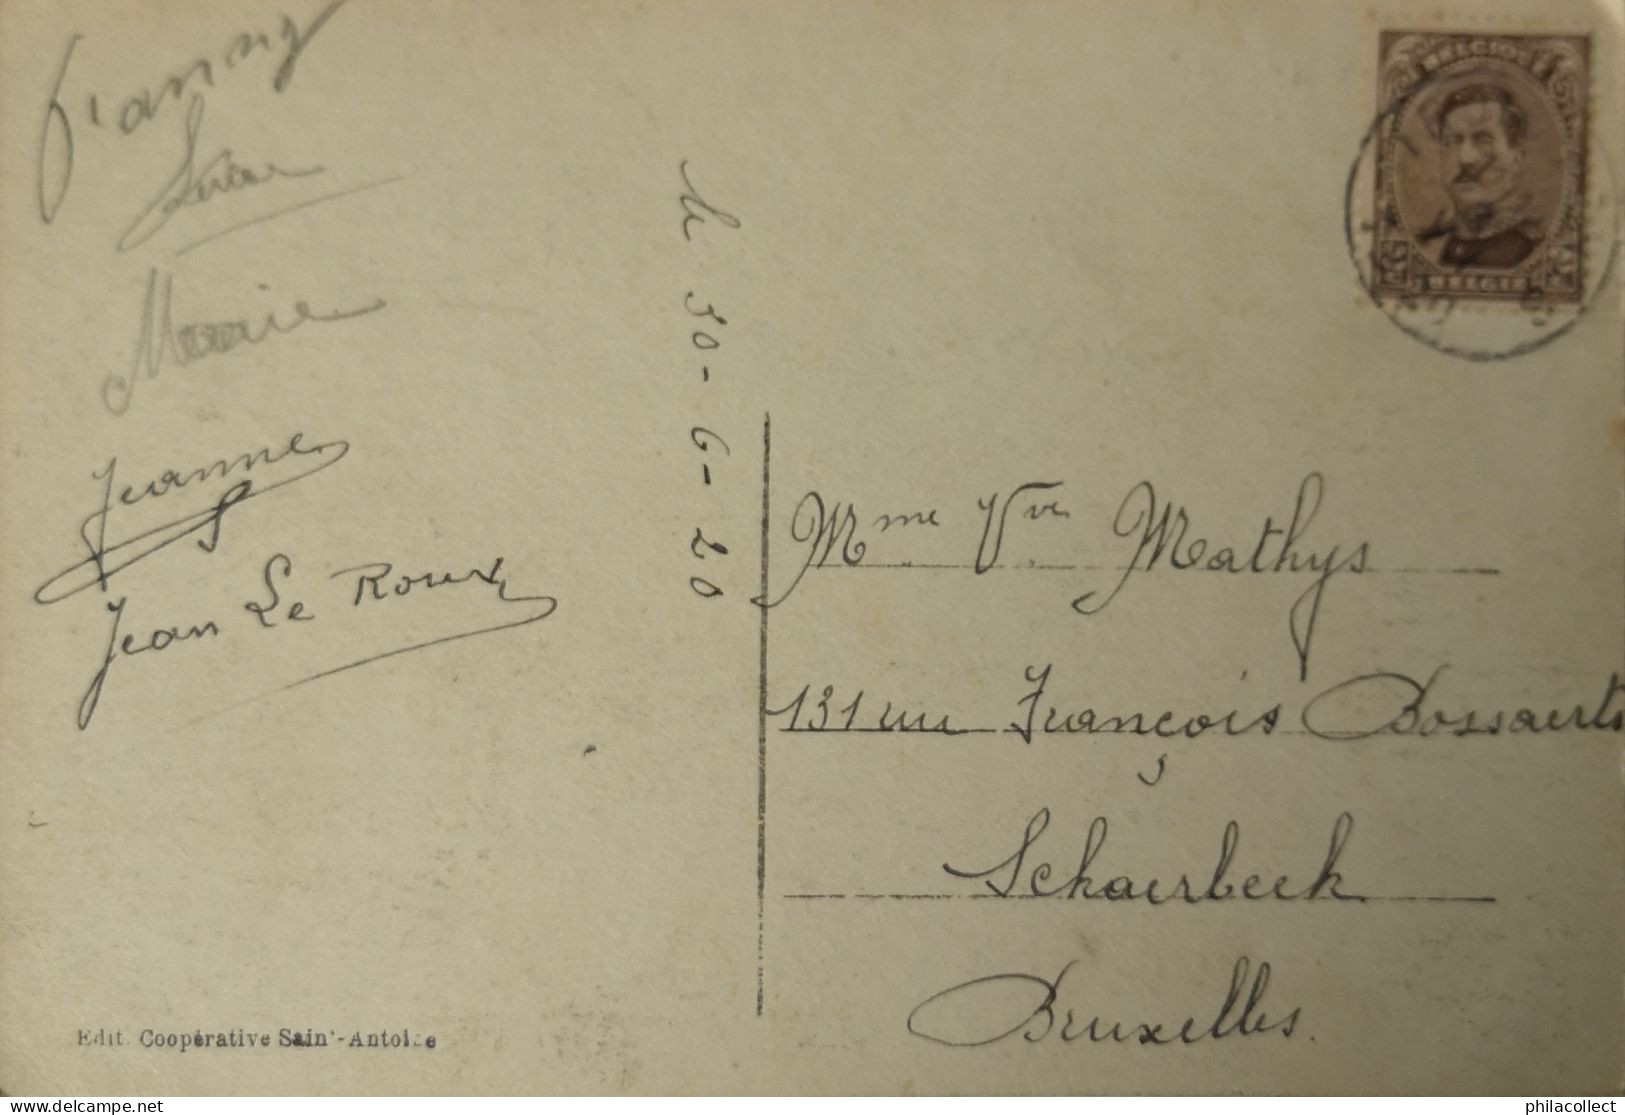 Fanny
Marie
Jeanne
Jean Le Roux
le 30-6-20
BELGIQUE
BELGIE
Mme Vve Mathys
131 rue François Bossaerts
Schaerbeek
Bruxelles.
Edit. Coopérative Saint-Antoine
philacollect